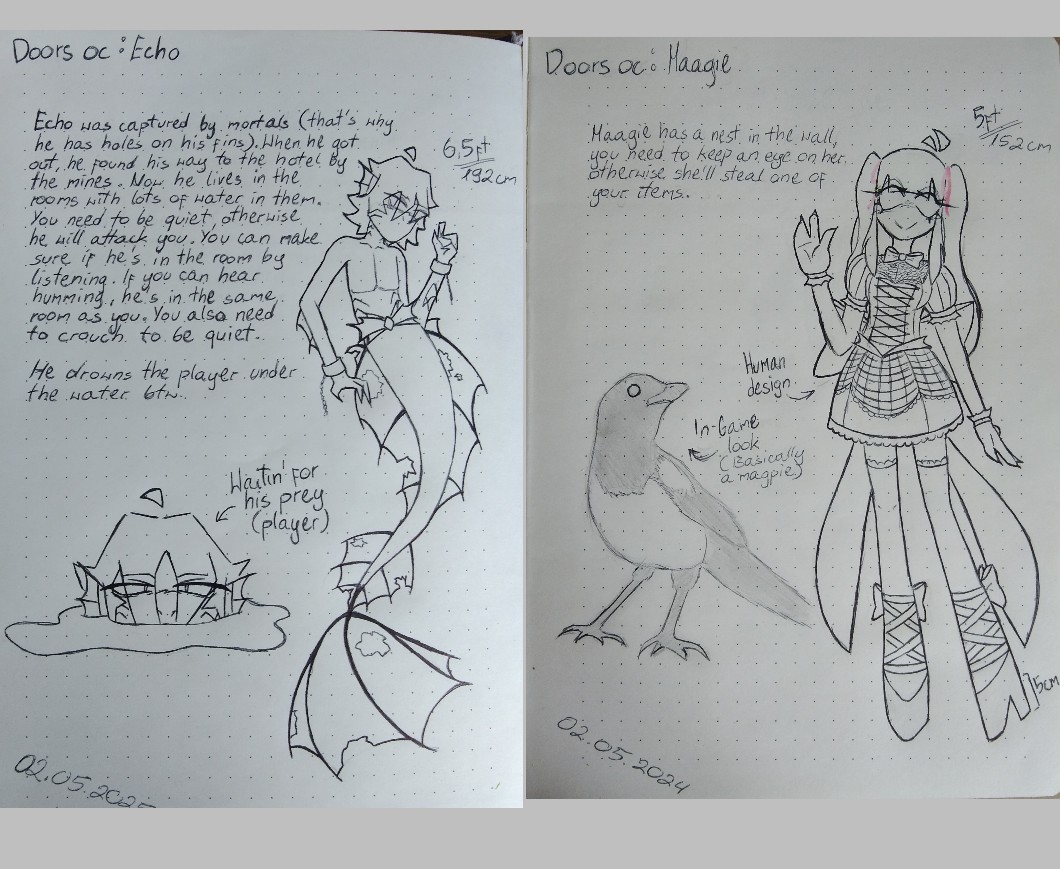 Doors oc: Echo
Echo was captured by mortals (that's why
he has holes on his fins). When he got
out, he found his way to the hotel by
the mines. Now he lives in the
rooms with lots of water in them.
You need to be quiet, otherwise
he will attack you. You can make
sure if he's in the room by
listening. If you can hear
humming, he's in the same
room as you. You also need
to crouch to be quiet.
He drowns the player under
the water btw.
6,5ft
192cm
Waitin' for
his prey
(player)
Doors oc: Maagie
Maagie has a nest in the wall,
you need to keep an eye on her
otherwise she'll steal one of
your items.
5ft
152cm
Human
design
In-Game
look
(Basically
a magpie)
5cm
02.05.2024